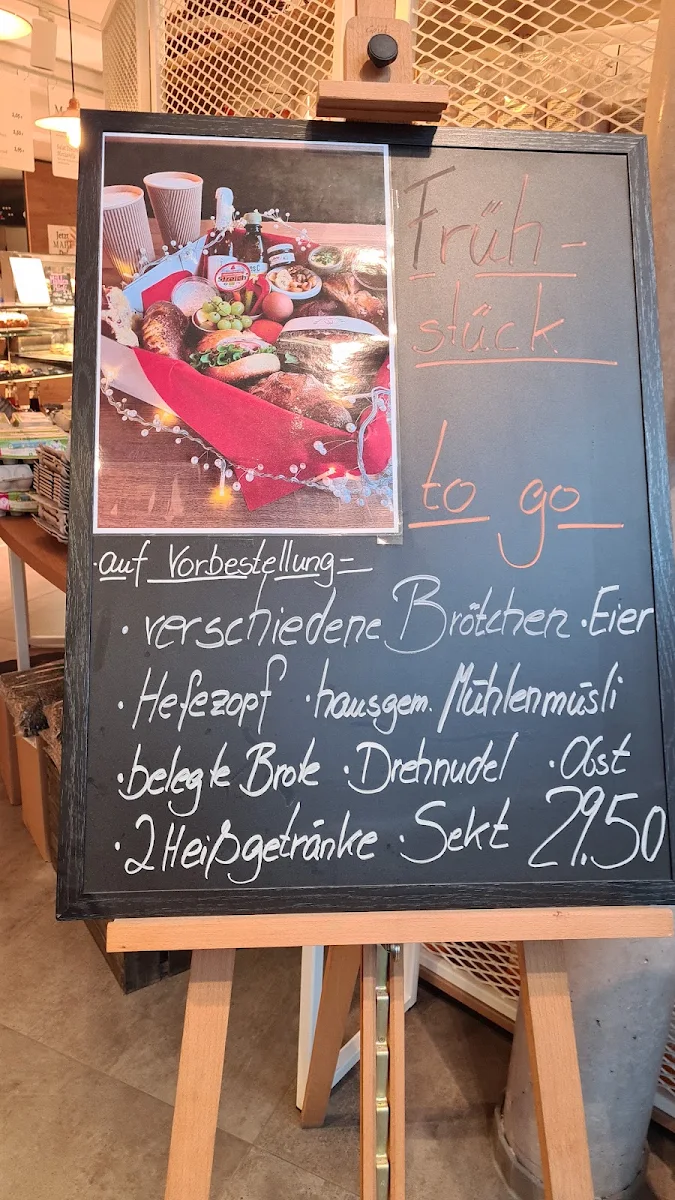 Früh-
stück
to go
auf Vorbestellung=
· verschiedene Brötchen · Eier
· Hefezopf · hausgem. Mühlenmüsli
· belegte Brote · Drehnudel · Obst
· 2 Heißgetränke · Sekt 29.50